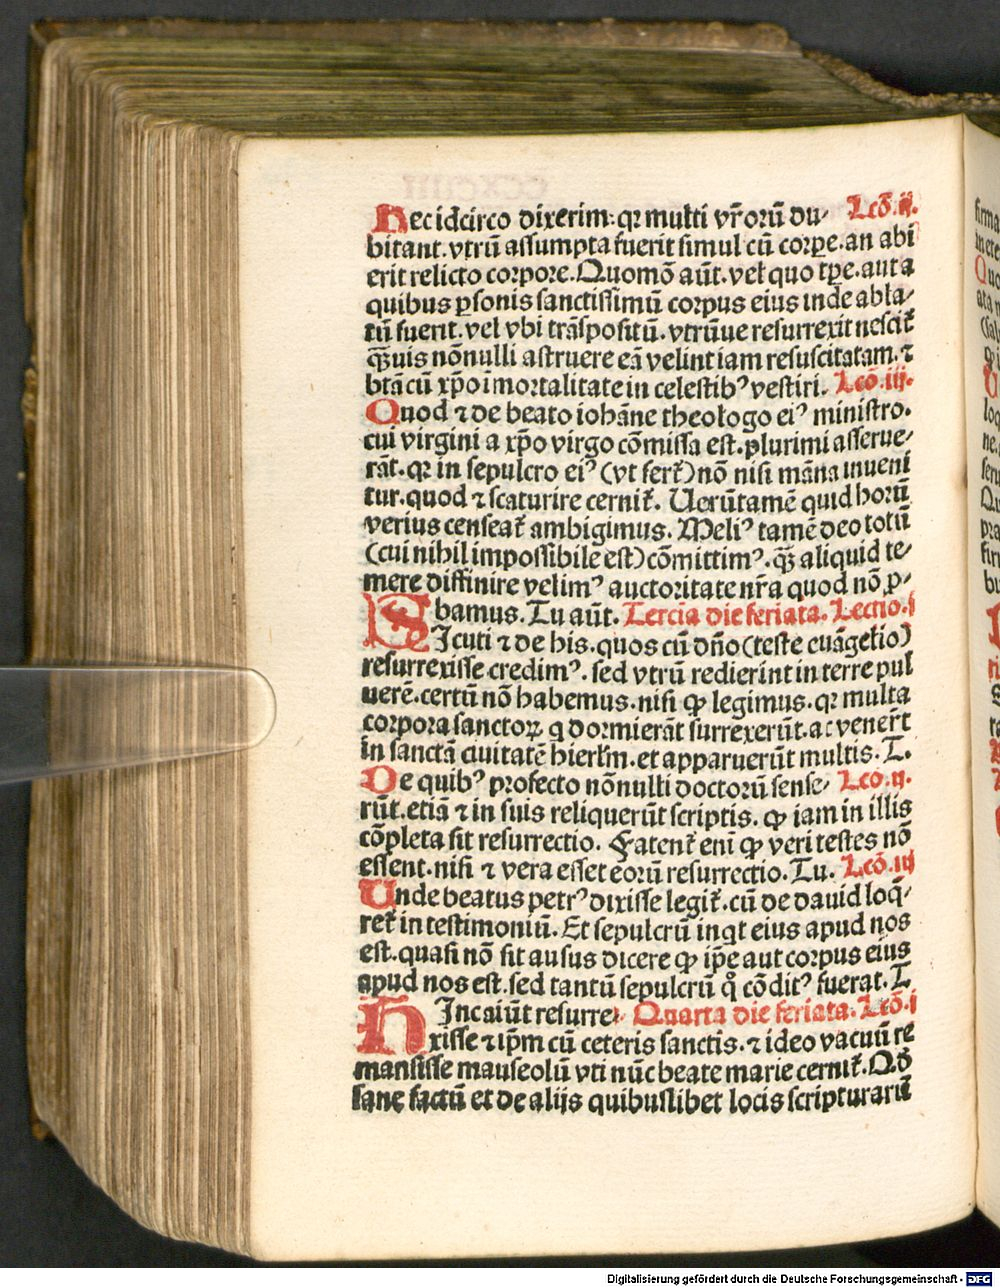 Hec idcirco dixerim: qꝛ multi vr̃orũ du- Lcõ.ij.
bitant. vtrũ assumpta fuerit simul cũ corꝑe. an abi
erit relicto corpore. Quomõ aũt. vel quo tꝑe. aut a
quibus ꝑsonis sanctissimũ corpus eius inde abla-
tũ fuerit. vel vbi trãspositũ. vtrũue resurrexit nescit̃
qᷓuis nõnulli astruere eã velint iam resuscitatam. ⁊
btãcũ xp̃o ĩmortalitate in celestibꝰ vestiri. Lcõ.iij.
Quod ⁊ de beato iohãne theologo eiꝰ ministro.
cui virgini a xp̃o virgo cõmissa est. plurimi asserue-
rãt. qꝛ in sepulcro eiꝰ (vt fert̃) nõ nisi mãna inueni
tur. quod ⁊ scaturire cernit̃. Uerũtamẽ quid horũ
verius censeat̃ ambigimus. Meliꝰ tamẽ deo totũ
(cui nihil impossibile est) cõmittimꝰ. qᷓ aliquid te-
mere diffinire velimꝰ auctoritate nr̃a quod nõ ꝓ-
bamus. Tu aũt. Tercia die feriata. Lectio.j
SIcuti ⁊ de his. quos cũ dño (teste euãgelio)
resurrexisse credimꝰ. sed vtrũ redierint in terre pul
uerẽ. certũ nõ habemus. nisi ꝙ legimus. qꝛ multa
corpora sanctoꝝ q dormierãt surrexerũt. ac vener̃t
in sanctã ciuitatẽ hierl̃m. et apparuerũt multis. T.
De quibꝰ profecto nõnulli doctorũ sense- Lcõ.ij.
rũt. etiã ⁊ in suis reliquerũt scriptis. ꝙ iam in illis
cõpleta sit resurrectio. Fatent̃ eni ꝙ veri testes nõ
essent. nisi ⁊ vera esset eorũ resurrectio. Tu. Lcõ.iij
Unde beatus petrꝰ dixisse legit̃. cũ de dauid loq̃-
ret̃ in testimoniũ. Et sepulcrũ inqt eius apud nos
est. quasi nõ sit ausus dicere ꝙ ip̃e aut corpus eius
apud nos est. sed tantũ sepulcrũ qͦ cõditꝰ fuerat. T
HInc aiũt resurre- Quarta die feriata. Lcõ.j
xisse ⁊ ip̃m cũ ceteris sanctis. ⁊ ideo vacuũ re
mansisse mauseolũ vti nũc beate marie cernit̃. Qđ
sane factũ et de alijs quibuslibet locis scripturarũ
Digitalisierung gefördert durch die Deutsche Forschungsgemeinschaft - DFG